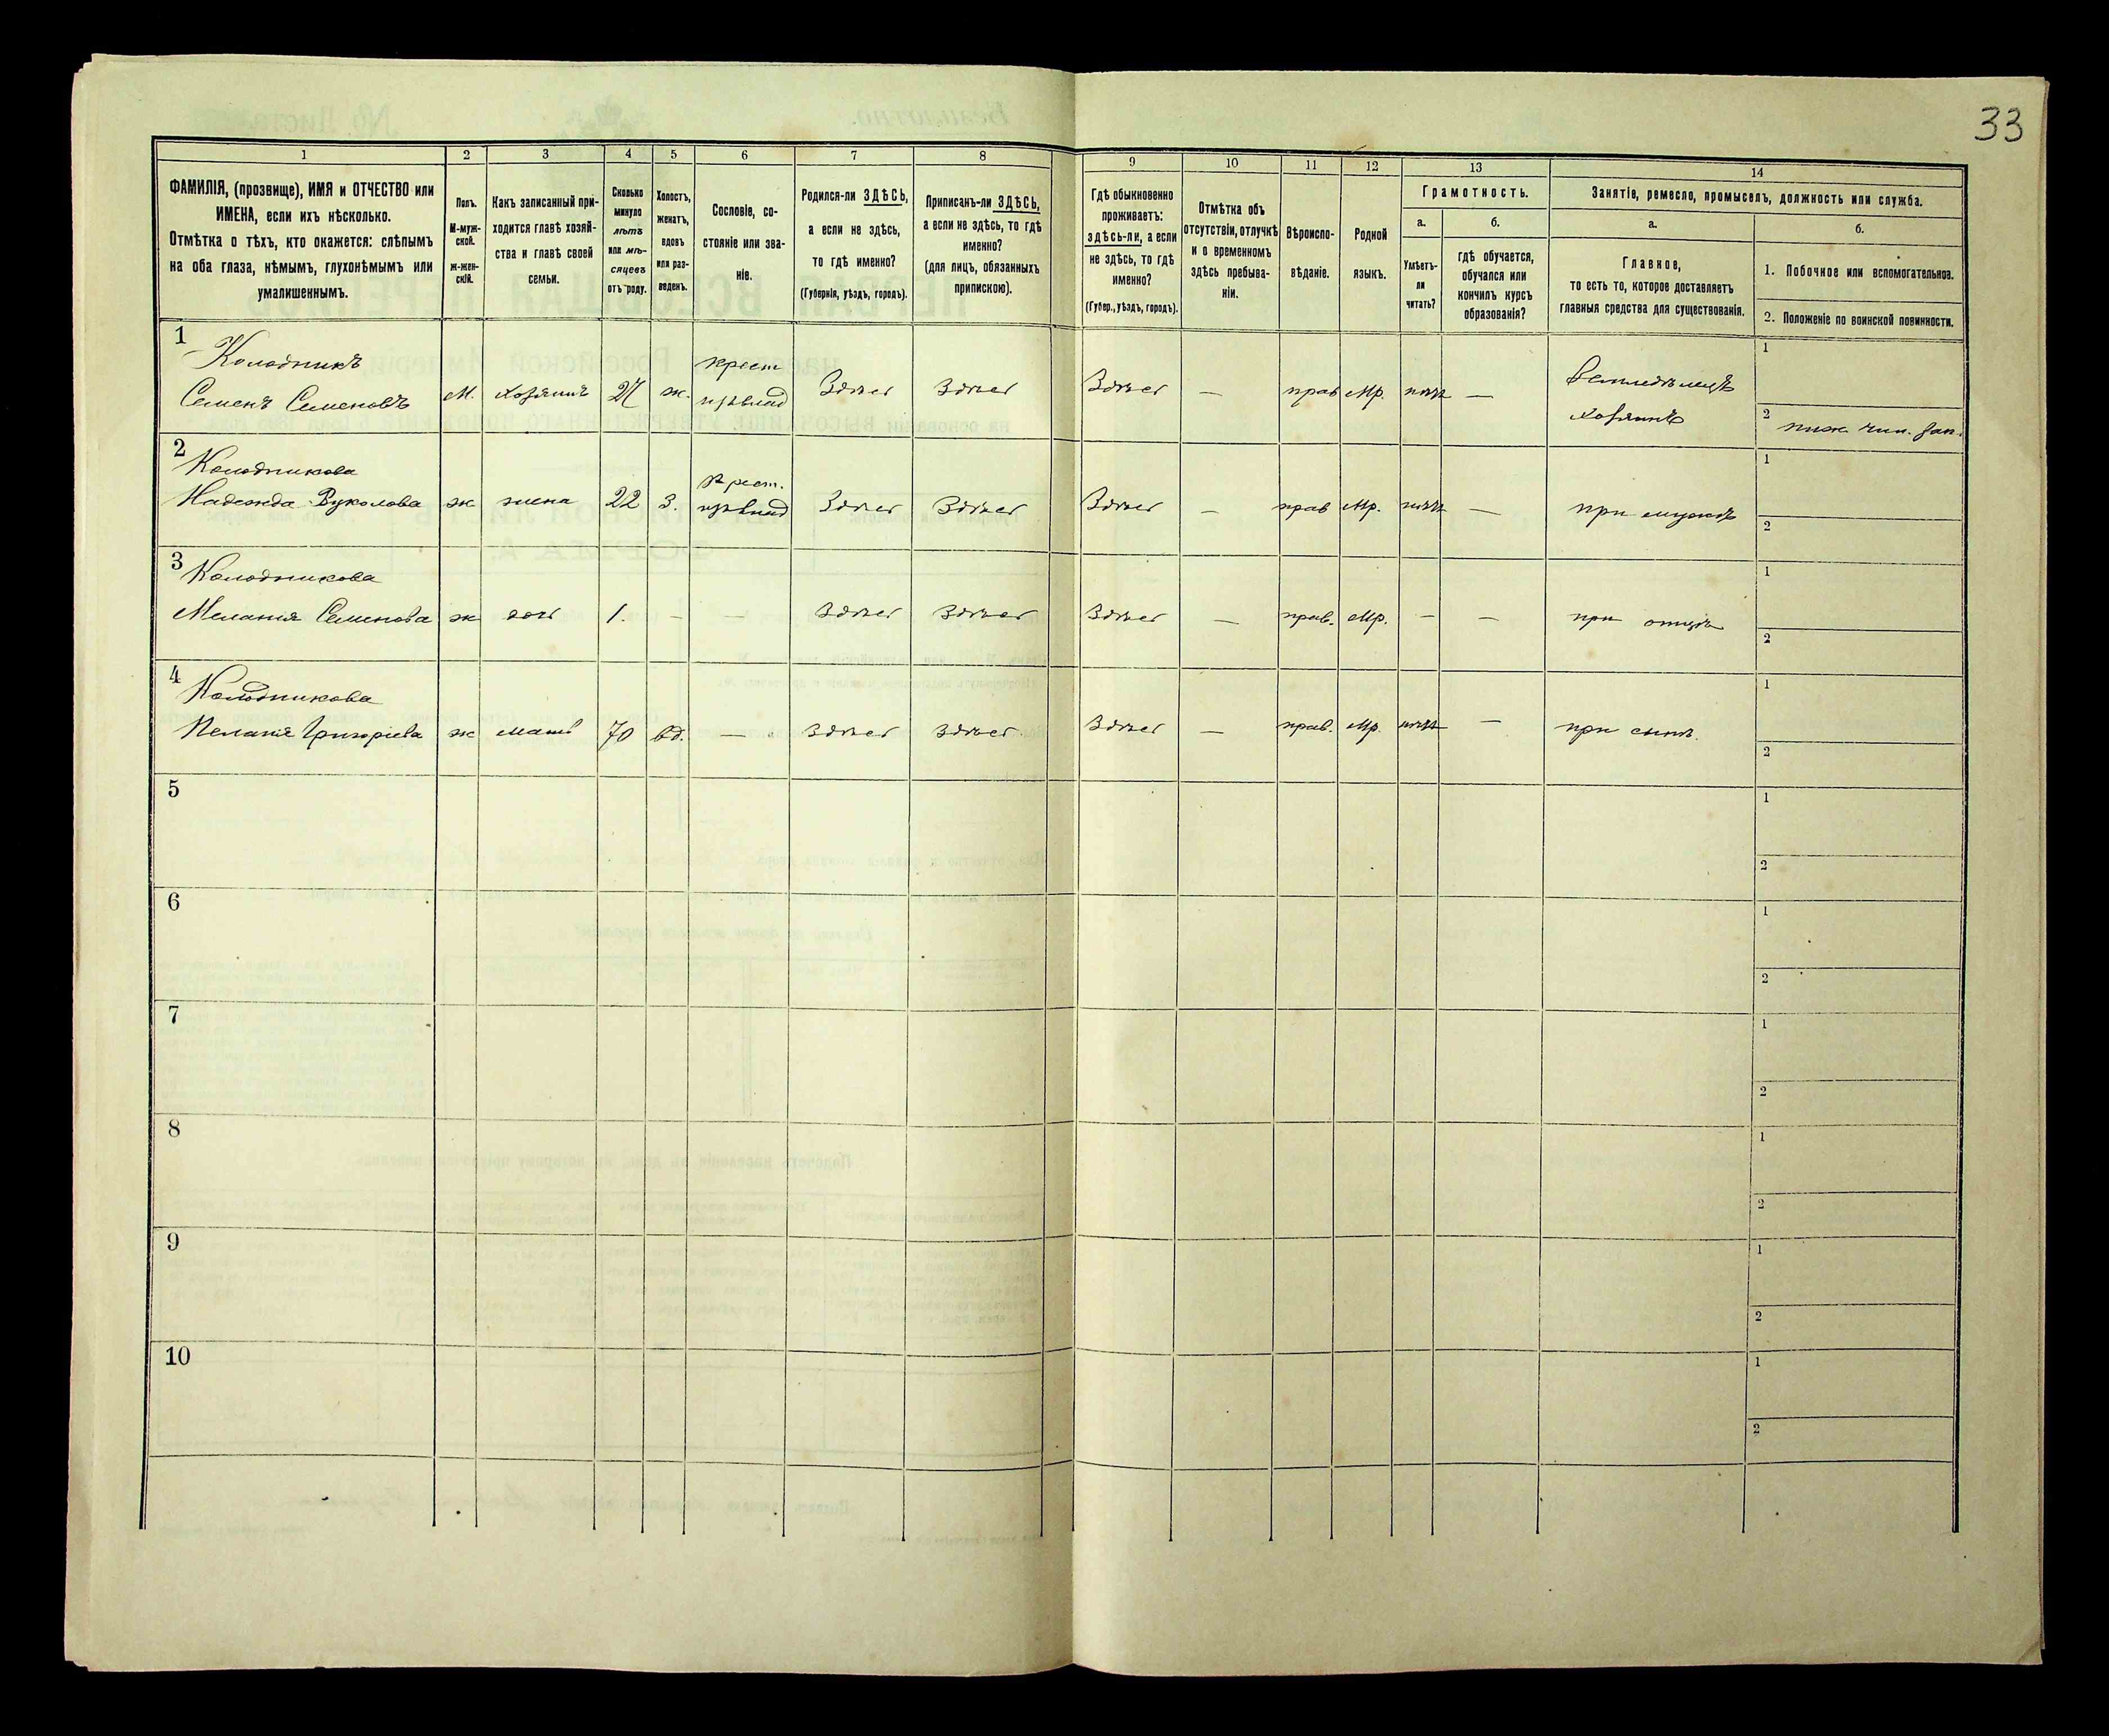 33
1 2 3 4 5 6 7 8 9 10 11 12 13 14
ФАМИЛІЯ, (прозвище), ИМЯ и ОТЧЕСТВО или
ИМЕНА, если ихъ нѣсколько.
Отмѣтка о тѣхъ, кто окажется: слѣпымъ
на оба глаза, нѣмымъ, глухонѣмымъ или
умалишеннымъ.
Полъ.
М-муж-
ской.
ж-жен-
скій.
Какъ записанный при-
ходится главѣ хозяй-
ства и главѣ своей
семьи.
Сколько
минуло
лѣтъ
или мѣ-
сяцевъ
отъ роду.
Холостъ,
женатъ,
вдовъ
или раз-
веденъ.
Сословіе, со-
стояніе или зва-
ніе.
Родился-ли ЗДѢСЬ,
а если не здѣсь,
то гдѣ именно?
(Губернія, уѣздъ, городъ).
Приписанъ-ли ЗДѢСЬ,
а если не здѣсь, то гдѣ
именно?
(для лицъ, обязанныхъ
припискою).
Гдѣ обыкновенно
проживаетъ:
здѣсь-ли, а если
не здѣсь, то гдѣ
именно?
(Губер., уѣздъ, городъ).
Отмѣтка объ
отсутствіи, отлучкѣ
и о временномъ
здѣсь пребыва-
ніи.
Вѣроиспо-
вѣданіе.
Родной
языкъ.
Грамотность.
а.
Умѣетъ-
ли
читать?
б.
гдѣ обучается,
обучался или
кончилъ курсъ
образованія?
Занятіе, ремесло, промыселъ, должность или служба.
а.
Главное,
то есть то, которое доставляетъ
главныя средства для существованія.
б.
1. Побочное или вспомогательное.
2. Положеніе по воинской повинности.
1 Колодникъ крест 1
Семенъ Семеновъ М. хозяинъ 27 ж. Здѣсь Здѣсь Здѣсь — прав Мр. нѣтъ — Земледѣлецъ
хозяинъ 2 ниж. чин. зап.
2 Колодникова крест. 1
Надежда Вуколова ж жена 22 з. Здѣсь Здѣсь Здѣсь — прав Мр. нѣтъ — при мужѣ 2
3 Колодникова 1
Меланія Семенова ж дочь 1. — — Здѣсь Здѣсь Здѣсь — прав. Мр. — — при отцѣ 2
4 Колодникова 1
Пелагія Григоріева ж мать 70 вд. — здѣсь здѣсь Здѣсь — прав. Мр. нѣтъ — при сынѣ. 2
5 1
2
6 1
2
7 1
2
8 1
2
9 1
2
10 1
2